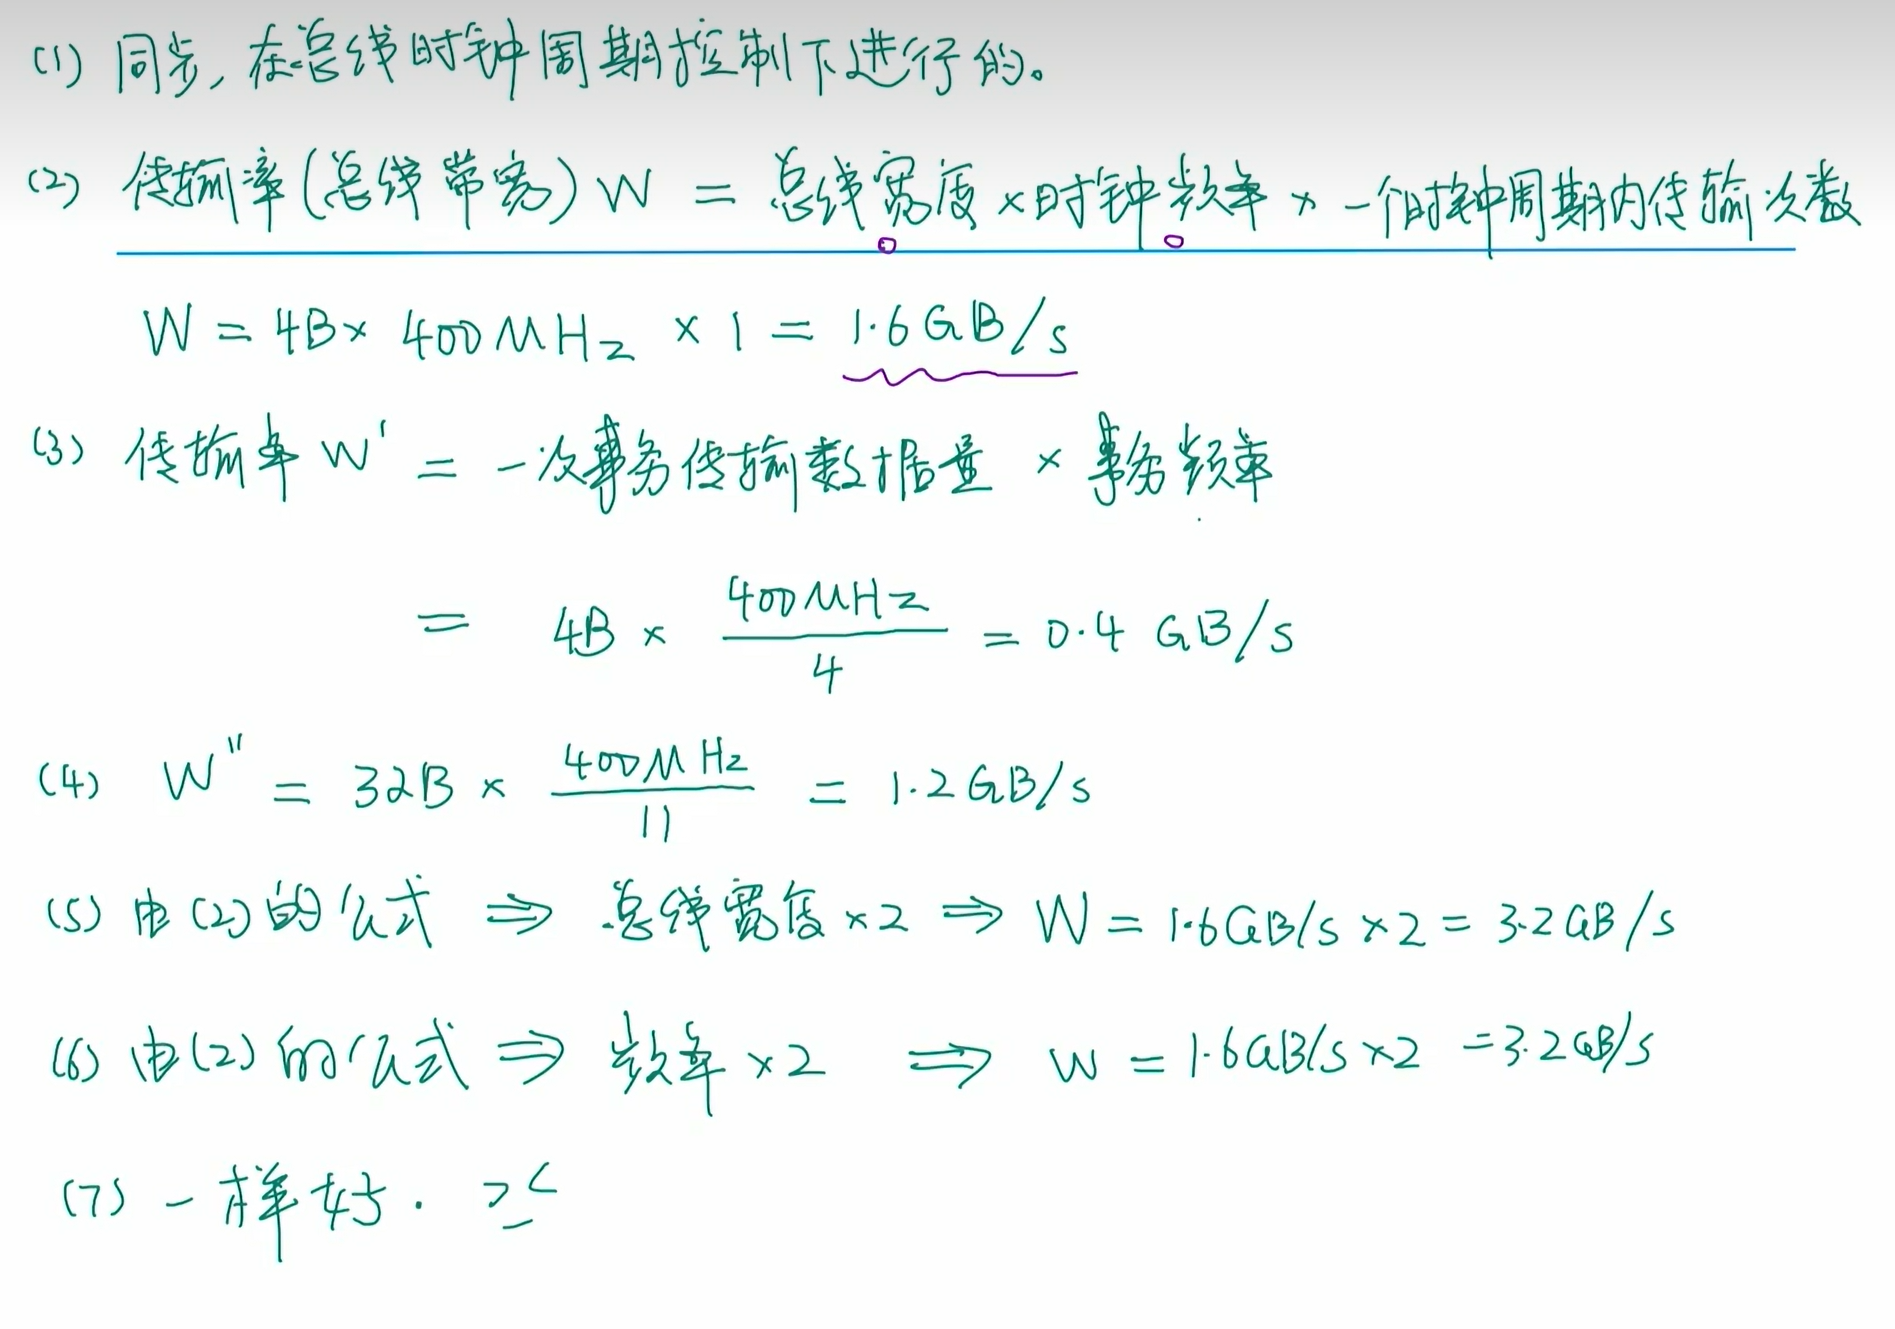 (1) 同步, 在总线时钟周期控制下进行的。
(2) 传输率(总线带宽) W = 总线宽度 × 时钟频率 × 一个时钟周期内传输次数
W = 4B × 400MHz × 1 = 1.6GB/s
(3) 传输率 W' = 一次事务传输数据量 × 事务频率
= 4B × 400MHz/4 = 0.4 GB/s
(4) W'' = 32B × 400MHz/11 = 1.2GB/s
(5) 由(2)的公式 ⇒ 总线宽度×2 ⇒ W = 1.6GB/s ×2 = 3.2GB/s
(6) 由(2)的公式 ⇒ 频率×2 ⇒ W = 1.6GB/s×2 =3.2GB/s
(7) 一样好.